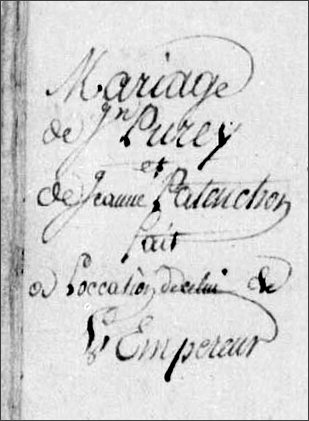 Mariage
de Jn Purey
et
de Jeanne Patouchon
fait
a l'occation de celui de
L'Empereur